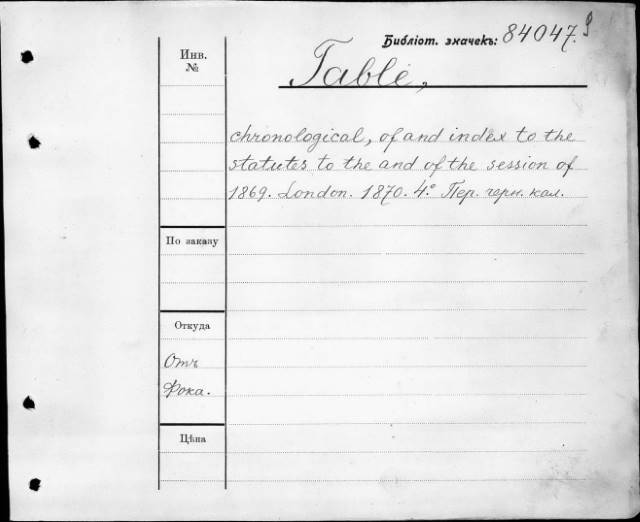 Библіот. значекъ: 84047.
Инв.
№
Table,
chronological, of and index to the
statutes to the and of the session of
1869. London. 1870. 4.º Пер. черн. кал.
По заказу
Откуда
Отъ
Фока.
Цѣна